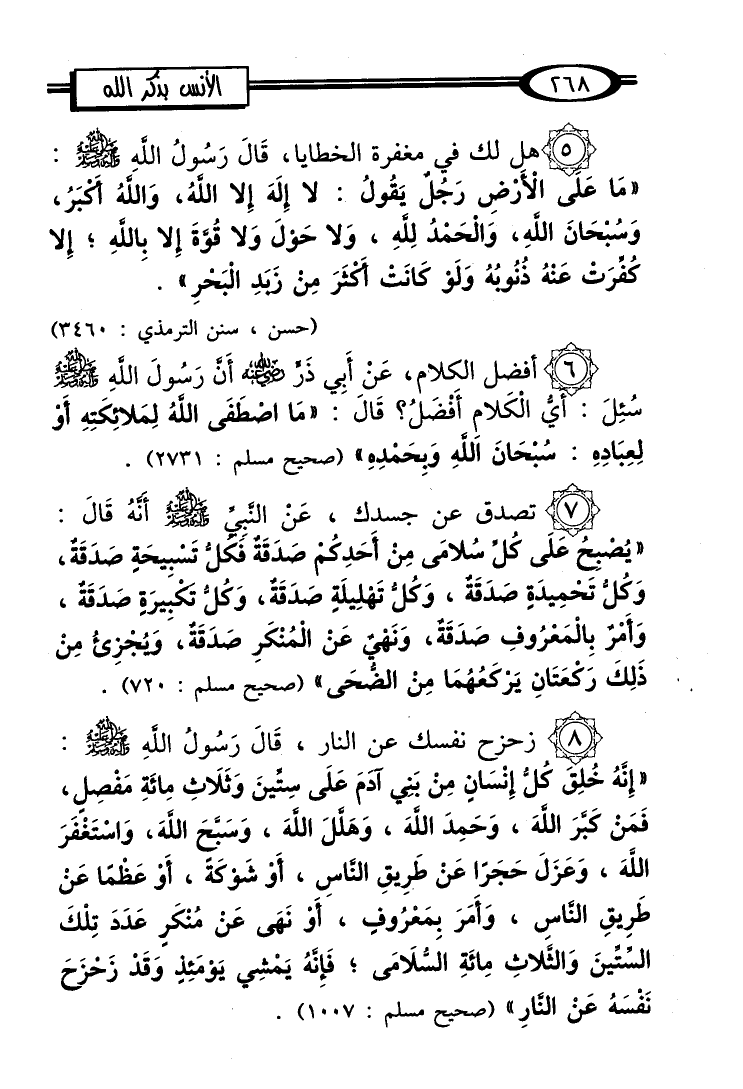 ٢٦٨
الأنس بذكر الله
٥ هل لك في مغفرة الخطايا، قَالَ رَسُولُ اللَّهِ ﷺ :
«مَا عَلَى الْأَرْضِ رَجُلٌ يَقُولُ : لا إِلَهَ إِلا اللَّهُ، وَاللَّهُ أَكْبَرُ،
وَسُبْحَانَ اللَّهِ، وَالْحَمْدُ لِلَّهِ ، وَلا حَوْلَ وَلا قُوَّةَ إِلا بِاللَّهِ ؛ إِلا
كُفِّرَتْ عَنْهُ ذُنُوبُهُ وَلَوْ كَانَتْ أَكْثَرَ مِنْ زَبَدِ الْبَحْرِ» .
(حسن ، سنن الترمذي : ٣٤٦٠)
٦ أفضل الكلام، عَنْ أَبِي ذَرٍّ رضي الله عنه أَنَّ رَسُولَ اللَّهِ ﷺ
سُئِلَ : أَيُّ الْكَلَامِ أَفْضَلُ؟ قَالَ : «مَا اصْطَفَى اللَّهُ لِمَلائِكَتِهِ أَوْ
لِعِبَادِهِ : سُبْحَانَ اللَّهِ وَبِحَمْدِهِ» (صحيح مسلم : ٢٧٣١) .
٧ تصدق عن جسدك ، عَنْ النَّبِيِّ ﷺ أَنَّهُ قَالَ :
«يُصْبِحُ عَلَى كُلِّ سُلامَى مِنْ أَحَدِكُمْ صَدَقَةٌ فَكُلُّ تَسْبِيحَةٍ صَدَقَةٌ،
وَكُلُّ تَحْمِيدَةٍ صَدَقَةٌ ، وَكُلُّ تَهْلِيلَةٍ صَدَقَةٌ، وَكُلُّ تَكْبِيرَةٍ صَدَقَةٌ ،
وَأَمْرٌ بِالْمَعْرُوفِ صَدَقَةٌ، وَنَهْيٌ عَنْ الْمُنْكَرِ صَدَقَةٌ، وَيُجْزِئُ مِنْ
ذَلِكَ رَكْعَتَانِ يَرْكَعُهُمَا مِنَ الضُّحَى» (صحيح مسلم : ٧٢٠) .
٨ زحزح نفسك عن النار ، قَالَ رَسُولُ اللَّهِ ﷺ :
«إِنَّهُ خُلِقَ كُلُّ إِنْسَانٍ مِنْ بَنِي آدَمَ عَلَى سِتِّينَ وَثَلَاثِ مِائَةِ مَفْصِلٍ،
فَمَنْ كَبَّرَ اللَّهَ ، وَحَمِدَ اللَّهَ ، وَهَلَّلَ اللَّهَ ، وَسَبَّحَ اللَّهَ، وَاسْتَغْفَرَ
اللَّهَ ، وَعَزَلَ حَجَرًا عَنْ طَرِيقِ النَّاسِ ، أَوْ شَوْكَةً ، أَوْ عَظْمًا عَنْ
طَرِيقِ النَّاسِ ، وَأَمَرَ بِمَعْرُوفٍ ، أَوْ نَهَى عَنْ مُنْكَرٍ عَدَدَ تِلْكَ
السِّتِّينَ وَالثَّلاثِ مِائَةِ السُّلَامَى ؛ فَإِنَّهُ يَمْشِي يَوْمَئِذٍ وَقَدْ زَحْزَحَ
نَفْسَهُ عَنْ النَّارِ» (صحيح مسلم : ١٠٠٧) .